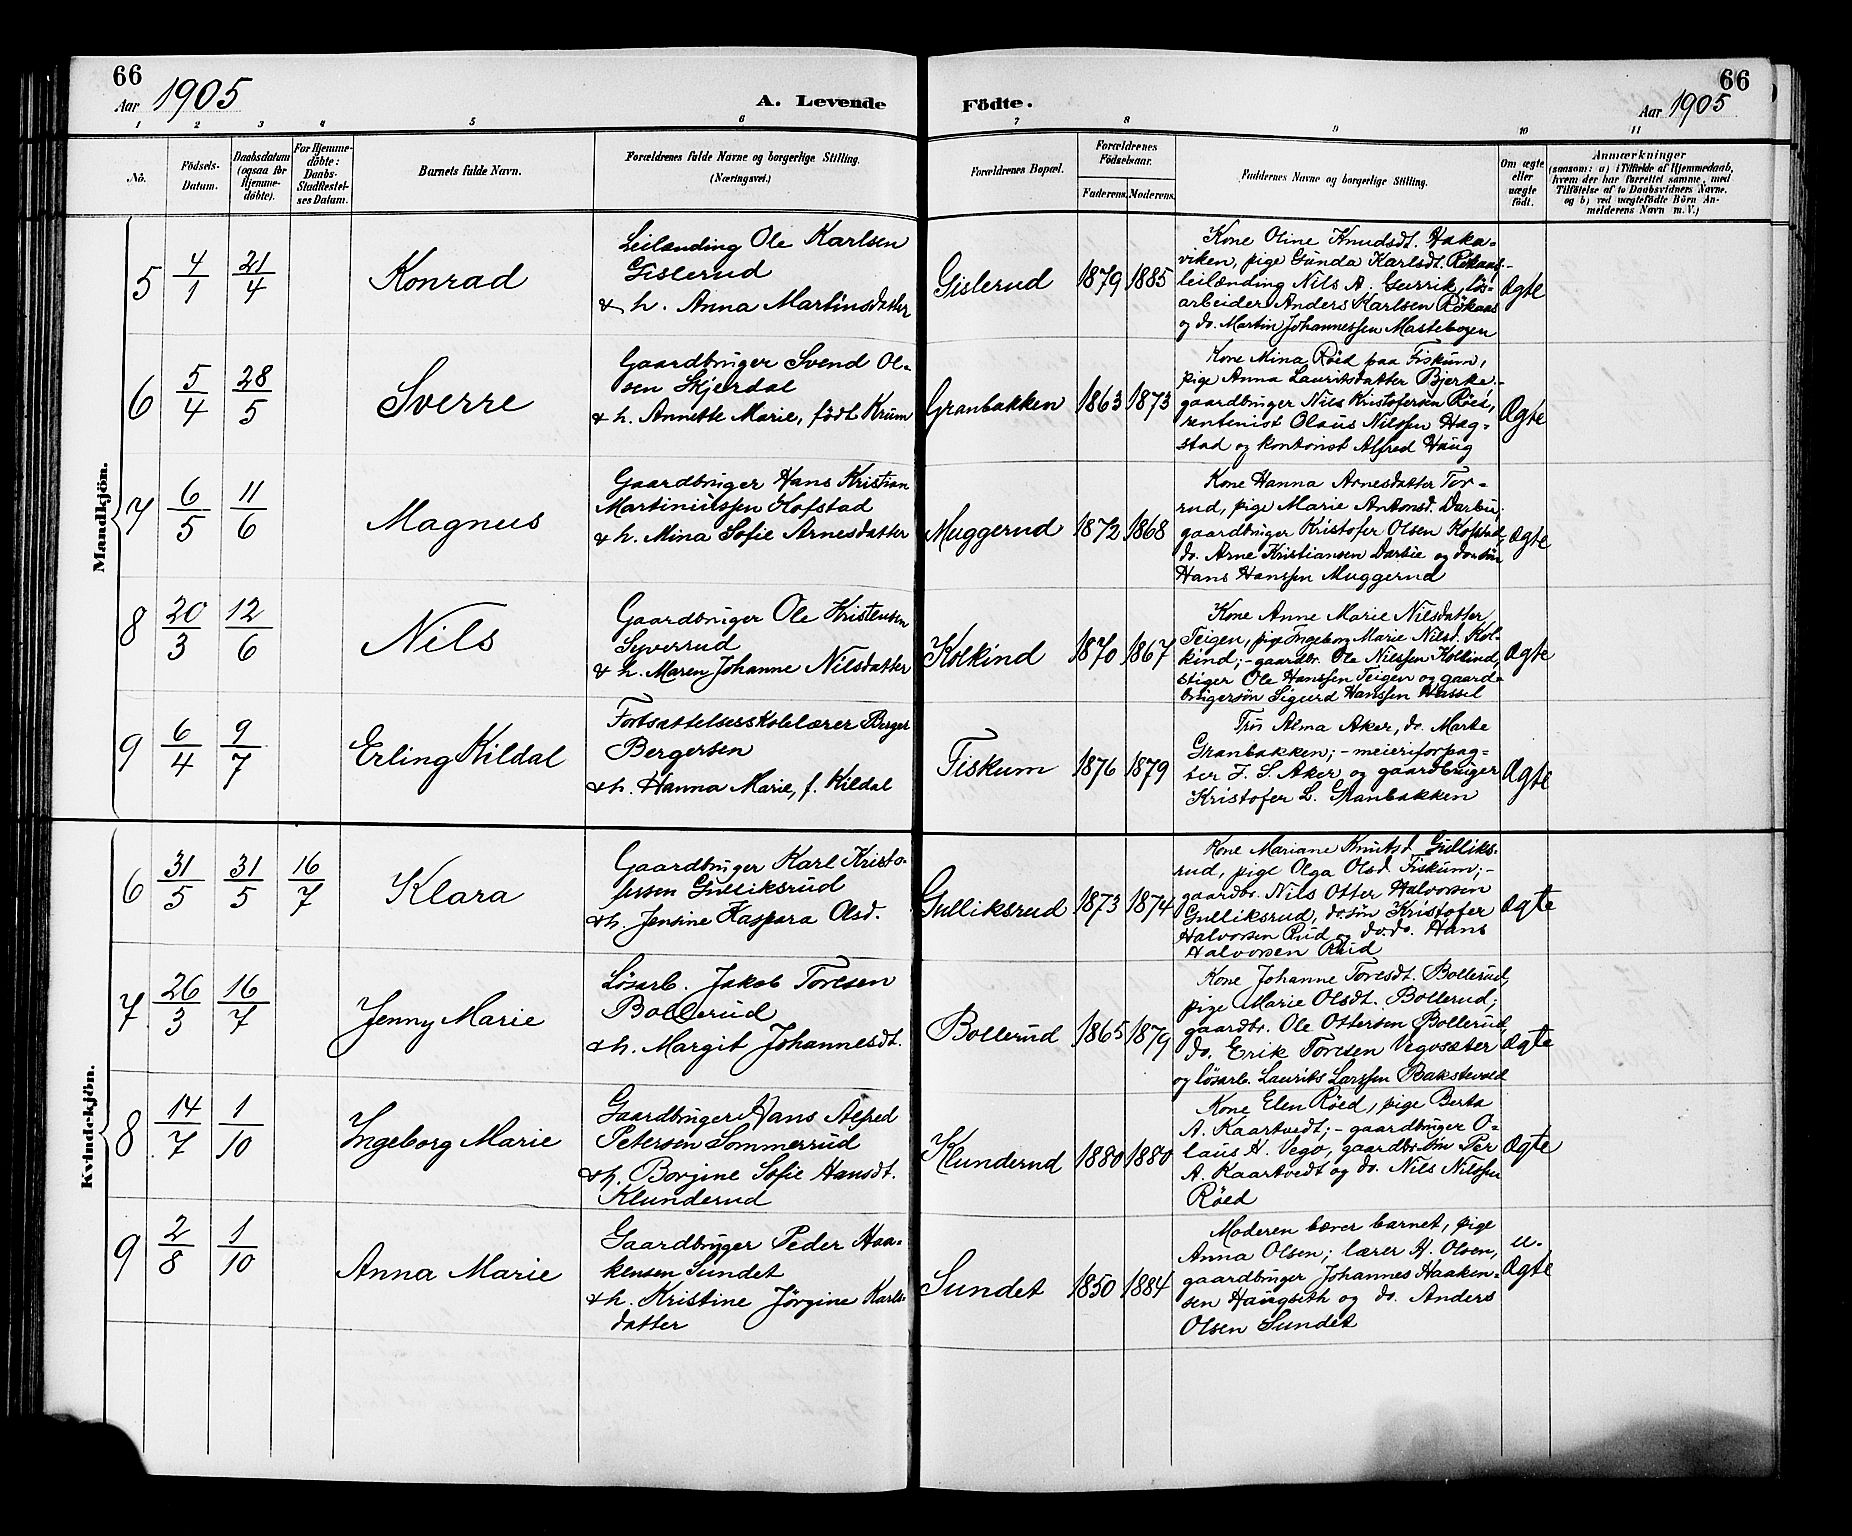 66
Aar 1905
A. Levende Födte.
66
Aar 1905
1 2 3 4 5 6 7 8 9 10 11
No.
Födsels-
Datum.
Daabsdatum
(ogsaa for
Hjemme-
döbte).
For Hjemme-
döbte:
Daabs-
Stadfæstel-
ses Datum.
Barnets fulde Navn.
Forældrenes fulde Navne og borgerlige Stilling.
(Næringsvei.)
Forældrenes Bopæl.
Forældrenes
Födselsaar.
Faderens. Moderens.
Faddernes Navne og borgerlige Stilling.
Om ægte
eller
uægte
födt.
Anmærkninger
(saasom: a) i Tilfælde af Hjemmedaab,
hvem der har forrettet samme, med
Tilföielse af to Daabsvidners Navne,
og b) ved uægtefödte Börn An-
melderens Navn m. V.)
Mandkjön.
5 4/1 21/4
Konrad
Leilænding Ole Karlsen
Gislerud
& h. Anna Martinsdatter
Gislerud 1879 1885
Kone Oline Knudsdt. Haka-
viken, pige Gunda Karlsdt. Rökaas,-
leilænding Nils A. Gurrik, løs-
arbeider Anders Karlsen Rökaas
og do. Martin Johannessen Mastebogen
Ægte
6 5/4 28/5
Sverre
Gaardbruger Svend Ol-
sen Skjerdal
& h. Annette Marie, født Krum
Granbakken 1863 1873
Kone Mina Røed paa Fiskum,
pige Anna Lauritsdatter Bjerke-
gaardbruger Nils Kristofersen Røed,
rentenist Olaus Nilssen Hag-
stad og kontorist Alfred Haug
Ægte
7 6/5 11/6
Magnus
Gaardbruger Hans Kristian
Martiniussen Hofstad
& h. Mina Sofie Arnesdatter
Muggerud 1872 1868
Kone Hanna Arnesdatter Tor-
rud, pige Marie Antonsd. Darbu;
gaardbruger Kristofer Olsen
do. Arne Kristiansen Darbu og do. søn
Hans Hanssen Muggerud
Ægte
8 20/3 12/6
Nils
Gaardbruger Ole Kristensen
Syverrud
& h. Maren Johanne Nilsdatter
Kolkind 1870 1867
Kone Anne Marie Nilsdatter
Teigen, pige Ingeborg Marie Nilsd. Kol-
kind;- gaardbr. Ole Nilssen Kolkind,
stiger Ole Hanssen Teigen og gaard-
brugersøn Sigurd Hanssen Hassel
Ægte
9 6/4 9/7
Erling Kildal
Fortsættelsesskolelærer Berger
Bergersen
& h. Hanna Marie, f. Kildal
Fiskum 1876 1879
Frøs Alma Aker, do. Marte
Granbakken;- meieriforpag-
ter F. S. Aker og gaardbruger
Kristofer L. Granbakken
Ægte
Kvindekjön.
6 31/5 31/5 16/7
Klara
Gaardbruger Karl Kristo-
fersen Gulliksrud
& h. Jensine Kaspara Olsd.
Gulliksrud 1873 1874
Kone Mariane Knutsd. Gulliks-
rud, pige Olga Olsd. Fiskum;-
gaardbr. Nils Otter Halvorsen
Gulliksrud, do. søn Kristofer
Halvorsen Rud og do. do. Hans
Halvorsen Rud
Ægte
7 26/3 16/7
Jenny Marie
Løsarb. Jakob Toresen
Bollerud
& h. Margit Johannesdt.
Bollerud 1865 1879
Kone Johanne Toresdt. Bollerud,
pige Marie Olsdt. Bollerud;
gaardbr. Ole Ottersen Bollerud,
do. Erik Toresen Vegosæter
og løsarb. Laurits Larssen Bakstevold
Ægte
8 14/7 1/10
Ingeborg Marie
Gaardbruger Hans Alfred
Petersen Sommerrud
& h. Borgine Sofie Hansdt.
Klunderud
Klunderud 1880 1880
Kone Elen Røed, pige Berta
A. Kaartvedt;- gaardbruger O-
laus H. Vego, gaardbr. søn Per
A. Kaartvedt og do. Nils Nilssen
Røed
Ægte
9 2/8 1/10
Anna Marie
Gaardbruger Peder Haa-
kensen Sundet
& h. Kristine Jörgine Karls-
datter
Sundet 1850 1884
Moderen bærer barnet, pige
Anna Olsen; lærer H. Olsen,
gaardbruger Johannes Haaken-
sen Haugseth og do. Anders
Olsen Sundet
u-
Ægte